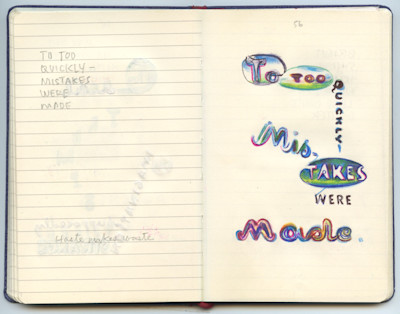 TO TOO
QUICKLY –
MISTAKES
WERE
MADE
To TOO
QUICKLY–
Mis-
TAKES
WERE
Made.